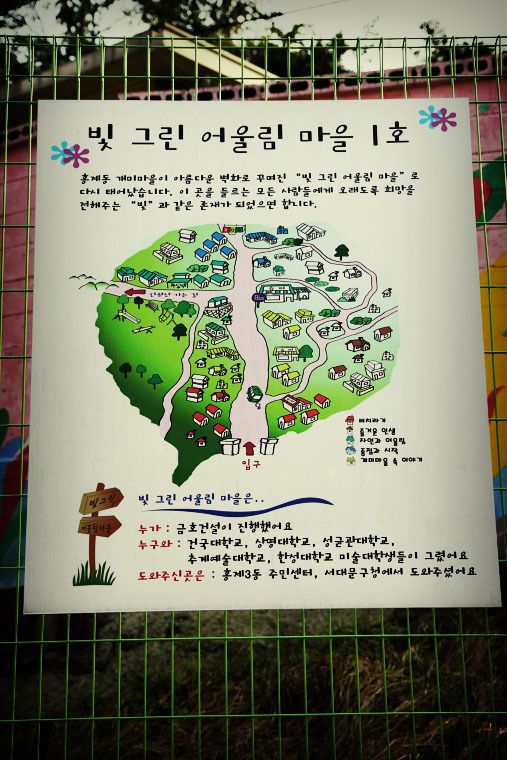 빛 그린 어울림 마을 1호
홍제동 개미마을이 아름다운 벽화로 꾸며진 "빛 그린 어울림 마을"로
다시 태어났습니다. 이 곳을 들르는 모든 사람들에게 오래도록 희망을
전해주는 "빛"과 같은 존재가 되었으면 합니다.
인왕산 가는 길
Bus
입구
자연과 어울림
즐거운 인생
개미마을 속 이야기
빛그린
어울림마을
빛 그린 어울림 마을은..
누가 : 금호건설이 진행했어요
누구와 : 건국대학교, 상명대학교, 성균관대학교,
추계예술대학교, 한성대학교 미술대학생들이 그렸어요
도와주신곳은 : 홍제3동 주민센터, 서대문구청에서 도와주셨어요